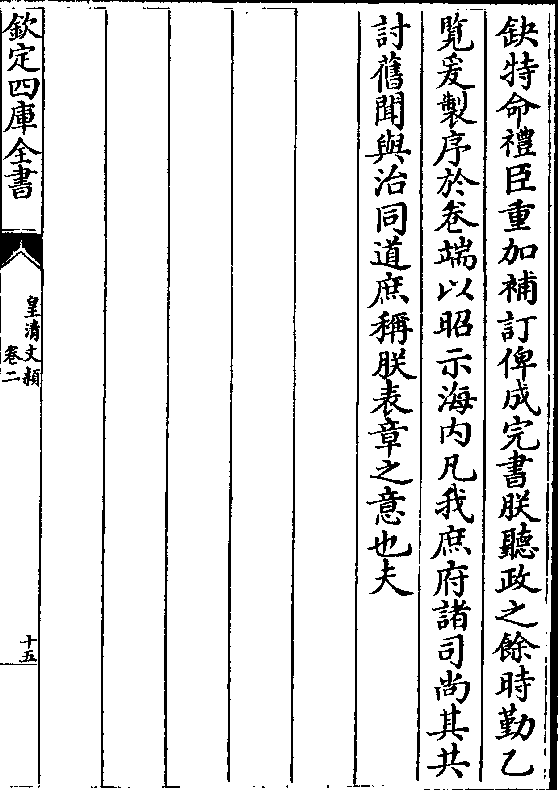 缺特命禮臣重加補訂俾成完書朕聽政之餘時勤乙
覽爰製序於卷端以昭示海內凡我庶府諸司尚其共
討舊聞與治同道庶稱朕表章之意也夫
欽定四庫全書
皇清文穎
卷二
十五